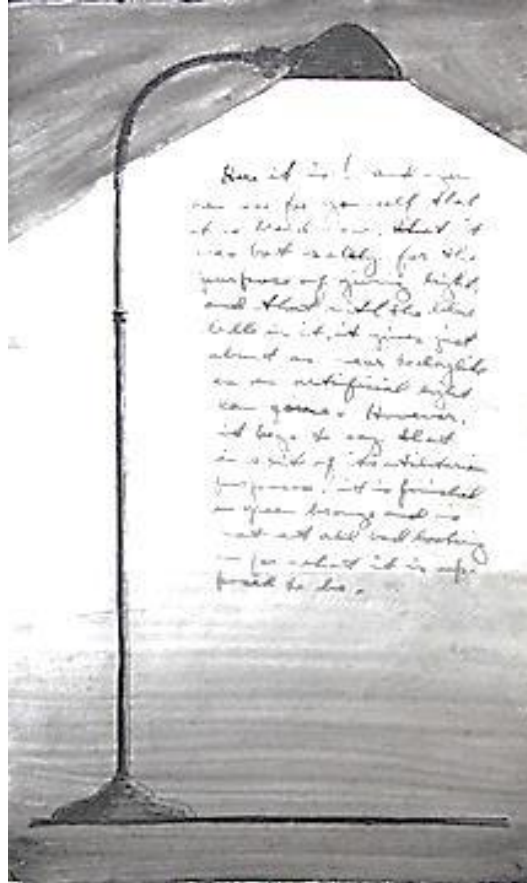 Here it is! and you
can see for yourself that
it is hand, that it
was but solely for the
purpose of giving light,
and that with the blue
bulb in it, it gives just
about as near to daylight
as an artificial light
can you. However,
it begs to say that
in spite of its utilitarian
purposes, it is finished
in green bronze and is
not at all bad looking
for what it is sup-
posed to be.